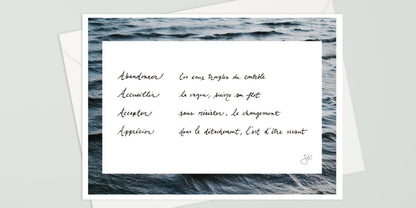 Abandonner les eaux troubles du contrôle
Accueillir la vague, suivre son flot
Accepter sans résister, le changement
Apprécier dans le détachement, l'art d'être vivant